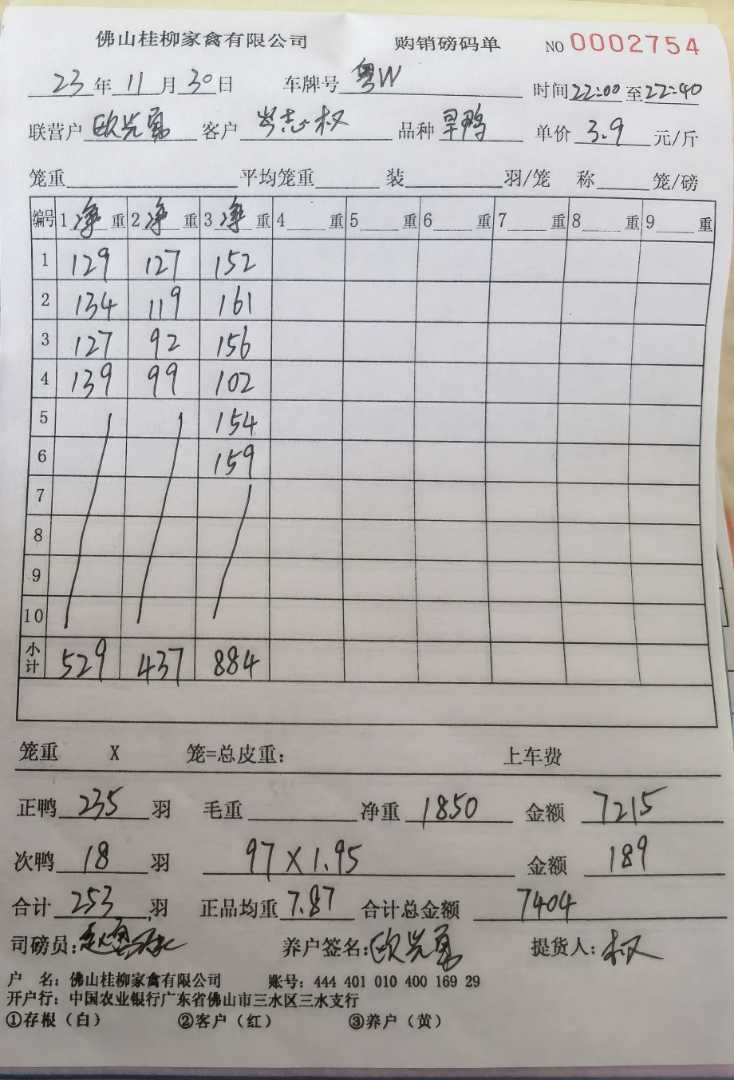 佛山桂柳家禽有限公司 购销磅码单 NO 0002754
23年11月30日 车牌号 粤W 时间22:00至22:40
联营户 欧兴勇 客户 岑志权 品种 旱鸭 单价 3.9 元/斤
笼重 平均笼重 装 羽/笼 称 笼/磅
编号 1 净 重 2 净 重 3 净 重 4 重 5 重 6 重 7 重 8 重 9 重
1 129 127 152
2 134 119 161
3 127 92 156
4 139 99 102
5 154
6 159
7
8
9
10
小计 529 437 884
笼重 X 笼=总皮重: 上车费
正鸭 235 羽 毛重 净重 1850 金额 7215
次鸭 18 羽 97×1.95 金额 189
合计 253 羽 正品均重 7.87 合计总金额 7404
司磅员: 养户签名: 欧兴勇 提货人: 权
户 名: 佛山桂柳家禽有限公司 账号: 444 401 010 400 169 29
开户行: 中国农业银行广东省佛山市三水区三水支行
①存根（白） ②客户（红） ③养户（黄）